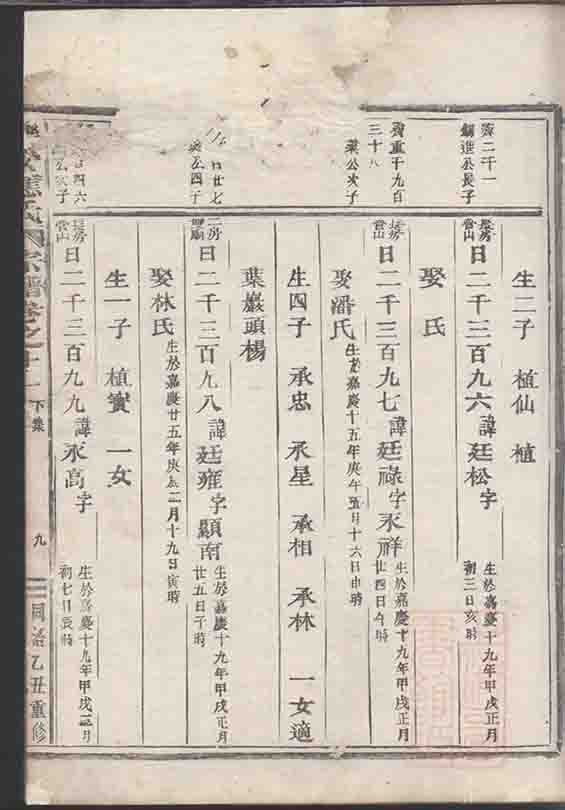 齊二千一
鎖進公長子
齊重千九百
三十八
業公次子
廿七
公四子
四六
公次子
生二子 植仙 植
塘房
嘗山
日二千三百九六諱廷松字
生於嘉慶十九年甲戌正月
初三日亥時
娶 氏
塘房
嘗山
日二千三百九七諱廷祿字永祥
生於嘉慶十九年甲戌正月
廿四日午時
娶潘氏
生於嘉慶十五年庚午五月十六日申時
生四子 承忠 承星 承相 承林 一女適
葉巖頭楊
二房
日二千三百九八諱廷雍字顯南
生於嘉慶十九年甲戌正月
廿五日子時
娶林氏
生於嘉慶廿五年庚辰二月十九日寅時
生一子 植賓 一女
塘房
嘗山
日二千三百九九諱永高字
生於嘉慶十九年甲戌三月
初七日辰時
氏宗譜卷之十一
下集
九
同治乙丑重修